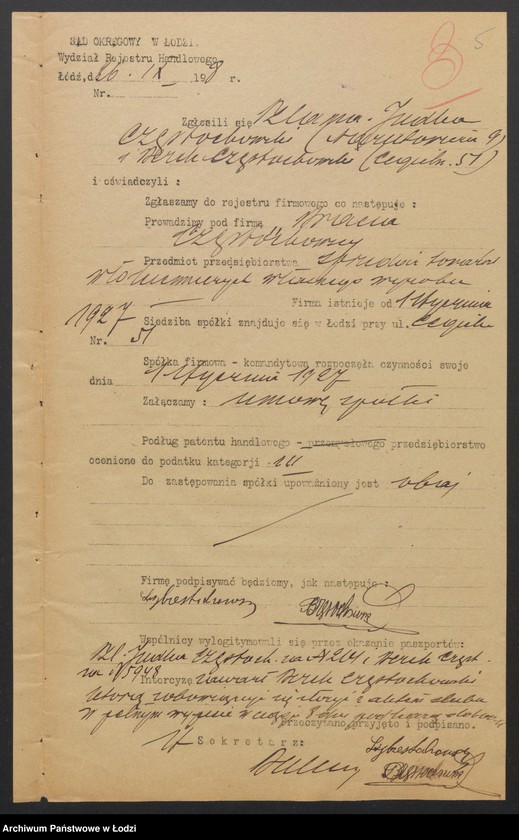 5
SĄD OKRĘGOWY W ŁODZI.
Wydział Rejestru Handlowego
Łódź, d. 26. IX 1928 r.
Nr.
Zgłosili się Szlama-Judka
Częstochowski (Narutowicza 9)
i Berek Częstochowski (Cegieln. 51)
i oświadczyli :
Zgłaszamy do rejestru firmowego co następuje :
Prowadzimy pod firmą Bracia
Przedmiot przedsiębiorstwa sprzedaż towarów
włókienniczych własnego wyrobu
Firma istnieje od 1 stycznia
1927 Siedziba spółki znajduje się w Łodzi przy ul. Cegieln.
Nr. 51
Spółka firmowa - komandytowa rozpoczęła czynności swoje
dnia 1 stycznia 1927
Załączamy : umowę spółki
Podług patentu handlowego - przemysłowego przedsiębiorstwo
ocenione do podatku kategorji III
Do zastępowania spółki upoważniony jest obaj
Firmę podpisywać będziemy, jak następuje :
Wspólnicy wylegitymowali się przez okazanie paszportów:
Szl. Judka Częstoch. za N 204 i Berek Częst.
za N 5948
Intercyzę zawarł Berek Częstochowski
którą zobowiązuje się złożyć z aktem ślubu
w pełnym wypisie w ciągu 8 dni
przeczytano, przyjęto i podpisano.
Sekretarz:
Archiwum Państwowe w Łodzi